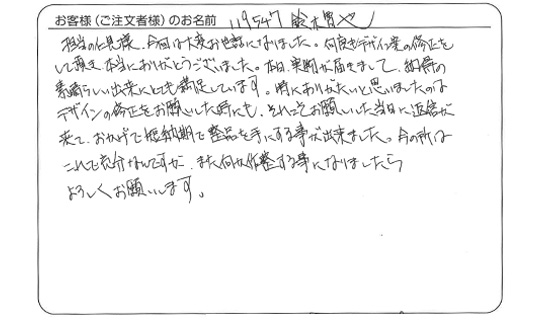 お客様（ご注文者様）のお名前 119547 鈴木 也
担当の仁見様、今回は大変お世話になりました。何度もデザイン案の修正を
して頂き、本当にありがとうございました。本日、実物が届きまして、納得の
素晴らしい出来にとても満足しています。特にありがたいと思いましたのは
デザインの修正をお願いした時にも、それこそお願いした当日に返信が
来て、おかげで短納期で製品を手にする事が出来ました。今の所は
これで充分なんですが、また何か作製する事になりましたら
よろしくお願いします。